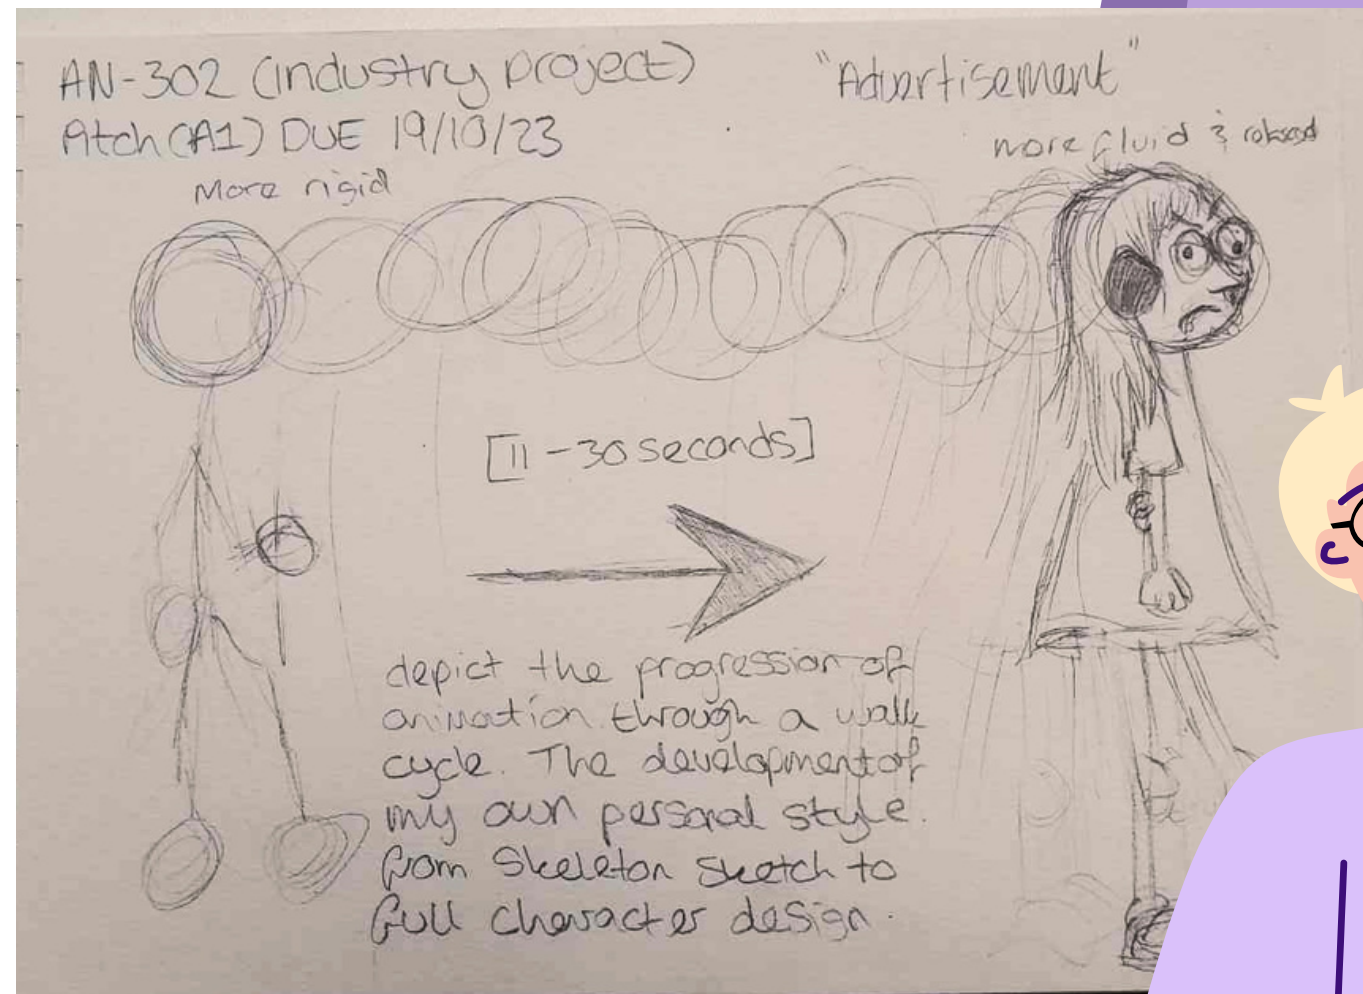 AN-302 (industry project)
"Advertisement"
Pitch (A1) DUE 19/10/23
more fluid & relaxed
More rigid
[11-30 seconds]
depict the progression of
animation through a walk
cycle. The development of
my own personal style.
from Skeleton sketch to
full character design.